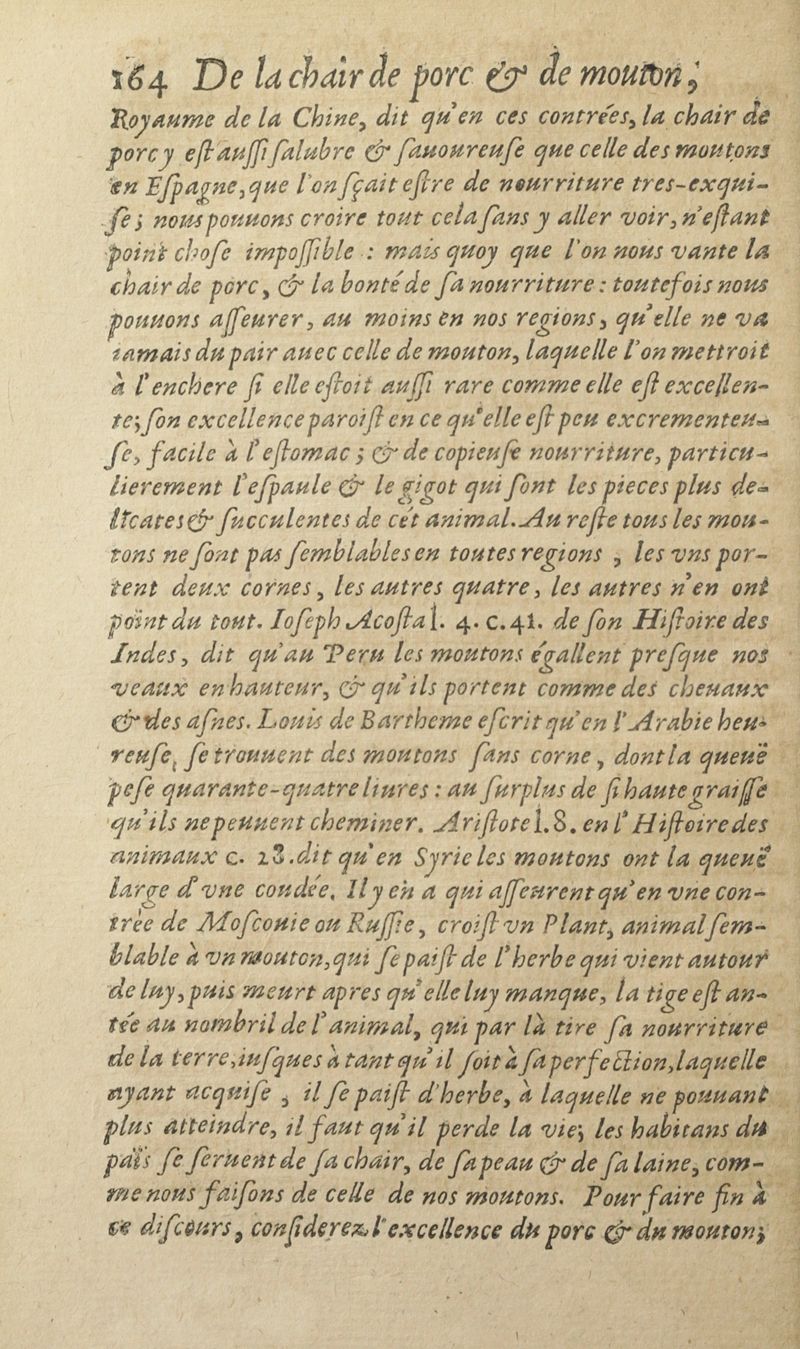 164 De la chair de porc & de mouton;
Royaume de la Chine, dit qu'en ces contrées, la chair de
porc y eſt auſſi ſalubre & ſauoureuſe que celle des moutons
en Eſpagne, que l'on ſçait eſtre de nourriture tres-exqui-
ſe; nous pouuons croire tout cela ſans y aller voir, n'eſtant
point choſe impoſſible : mais quoy que l'on nous vante la
chair de porc, & la bonté de ſa nourriture : toutefois nous
pouuons aſſeurer, au moins en nos regions, qu'elle ne va
iamais du pair auec celle de mouton, laquelle l'on mettroit
à l'enchere ſi elle eſtoit auſſi rare comme elle eſt excellen-
te; ſon excellence paroiſt en ce qu'elle eſt peu excrementeu-
ſe, facile à l'eſtomac ; & de copieuſe nourriture, particu-
lierement l'eſpaule & le gigot qui ſont les pieces plus de-
licates & ſucculentes de cét animal. Au reſte tous les mou-
tons ne ſont pas ſemblables en toutes regions , les vns por-
tent deux cornes, les autres quatre, les autres n'en ont
point du tout. Ioſeph Acoſta l. 4. c. 41. de ſon Hiſtoire des
Indes, dit qu'au Peru les moutons égallent preſque nos
veaux en hauteur, & qu'ils portent comme des cheuaux
& des aſnes. Louis de Bartheme eſcrit qu'en l'Arabie heu-
reuſe, ſe trouuent des moutons ſans corne, dont la queuë
peſe quarante-quatre liures : au ſurplus de ſi haute graiſſe
qu'ils ne peuuent cheminer. Ariſtote l. 8. en l'Hiſtoire des
animaux c. 28. dit qu'en Syrie les moutons ont la queuë
large d'vne coudée. Il y en a qui aſſeurent qu'en vne con-
trée de Moſcouie ou Ruſſie, croiſt vn Plant, animal ſem-
blable à vn mouton, qui ſe paiſt de l'herbe qui vient autour
de luy, puis meurt apres qu'elle luy manque, la tige eſt an-
tée au nombril de l'animal, qui par là tire ſa nourriture
de la terre, iuſques à tant qu'il ſoit à ſa perfection, laquelle
ayant acquiſe , il ſe paiſt d'herbe, à laquelle ne pouuant
plus atteindre, il faut qu'il perde la vie; les habitans du
païs ſe ſeruent de ſa chair, de ſa peau & de ſa laine, com-
me nous faiſons de celle de nos moutons. Pour faire fin à
ce diſcours, conſiderez l'excellence du porc & du mouton;